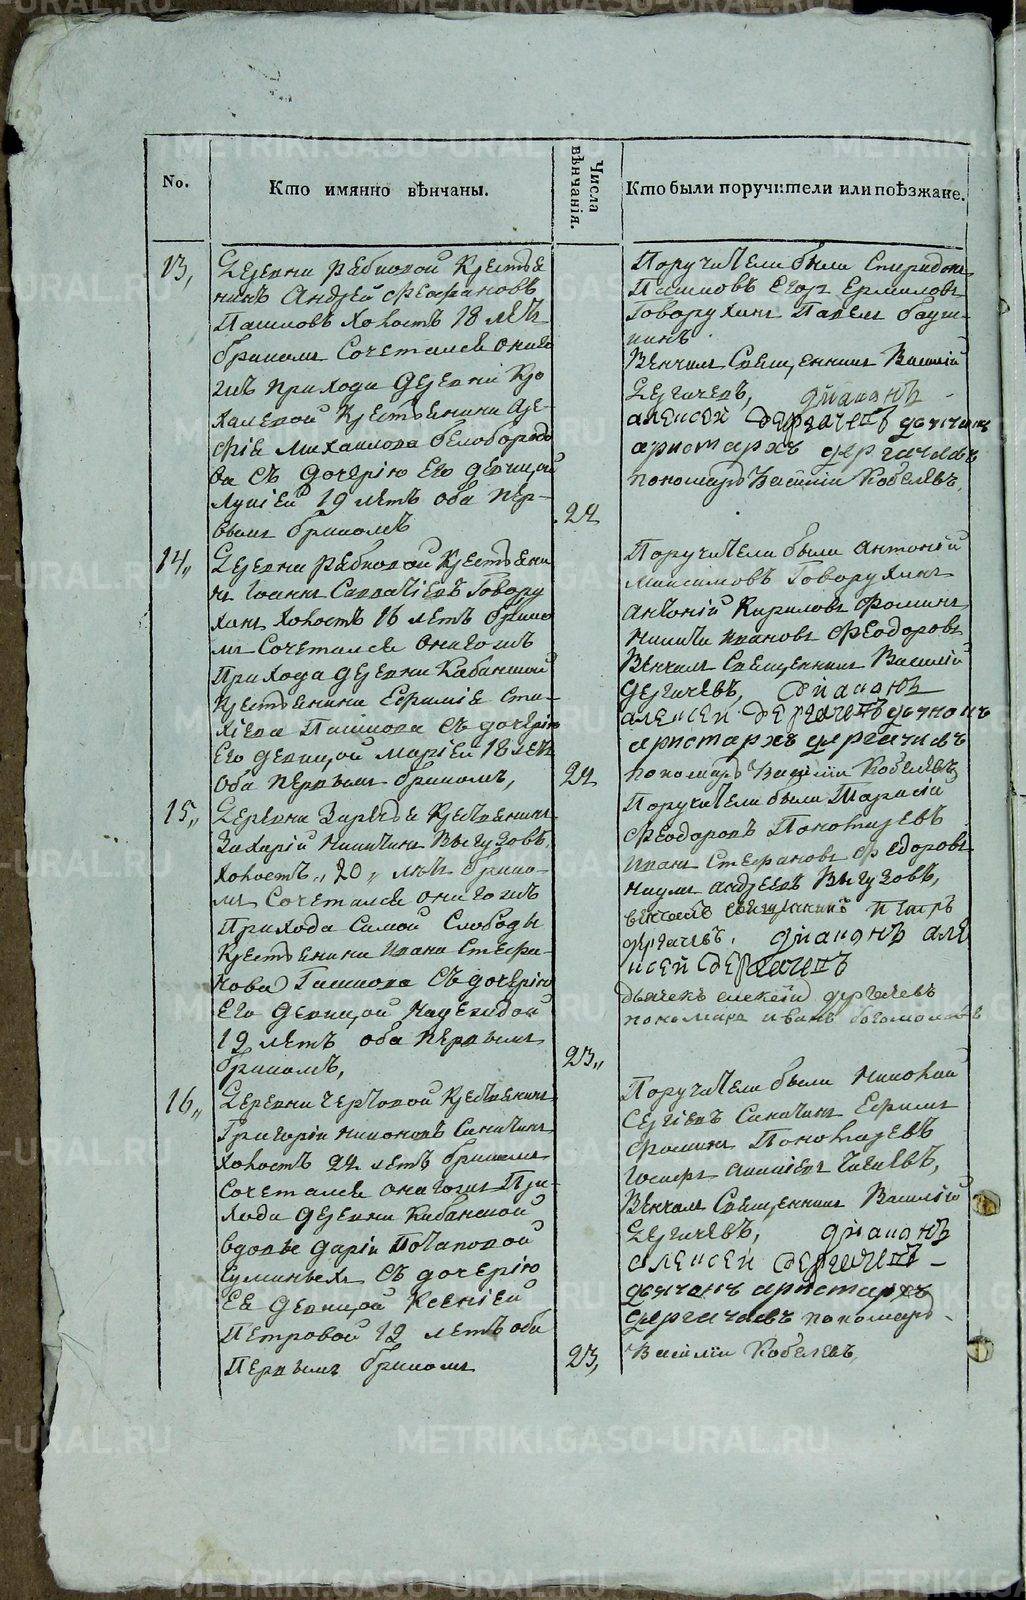 No.
Кто имянно вѣнчаны.
Числа вѣнчанія.
Кто были поручители или поѣзжане.
13,
Деревни Рябковой Крестья
нинъ Андрей Феофановъ
Пашковъ холостъ 18 лѣтъ
бракомъ Сочетался онаго
жъ прихода деревни Кро
халевой Крестьянина
Михаилова Белобородо
ва съ дочерію Его девицой
19 летъ оба пер-
вымъ бракомъ
24
Поручители были Спиридонъ
Пашковъ Егоръ Ермиловъ
Говорухинъ Павелъ
Венчалъ Священникъ Василій
Дергачевъ, діаконъ
алексей Дергачевъ дьячекъ
аристархъ дергачевъ
пономарь Василіи Кобелевъ,
14,,
Деревни Рябковой Крестьяни
нъ Иоаннъ Савватіевъ Говору
хинъ холостъ 18 летъ брако
мъ Сочетался онагожъ
Прихода деревни Кабанской
Крестьянина Ефимія
Пашкова съ дочерію
Его девицой Маріей 18 летъ
оба первымъ бракомъ,
24
Поручители были антоній
Максимовъ Говорухинъ
антоній Кириловъ Фоминъ
Никита ивановъ Феодоровъ
Венчалъ Священникъ Василій
Дергачевъ, діаконъ
алексеи Дергачевъ дьячокъ
аристархъ дергачевъ
пономарь Василіи Кобелевъ
15,,
Деревни Крестьянинъ
Захарій Никитинъ Выгузовъ,
холостъ,, 20,, летъ брако-
мъ Сочетался онагожъ
Прихода Самой Слободы
Крестьянина Ивана Стефа-
нова съ дочерію
Его девицой Надеждой
19 летъ оба первымъ
бракомъ,
23,,
Поручители были Тарасій
Феодоровъ Пономаревъ
иванъ Стефановъ Федоровъ
Наумъ андреевъ Выгузовъ,
венчалъ священникъ петръ
дергачевъ, діаконъ але
ксей Дергачевъ
дьячекъ алексій дергачевъ
пономарь иванъ богомоловъ
16,,
Деревни Черновой Крестьянинъ
Григоріи никоновъ Синицинъ
холостъ 24 летъ бракомъ
Сочетался онагожъ При-
хода деревни Кабанской
вдовы Даріи Потаповой
съ дочерію
Ея Девицой Ксеніей
Петровой 19 летъ оба
Первымъ бракомъ
23,
Поручители были Николай
Сергіевъ Синицинъ Ефимъ
Фоминъ Пономаревъ
Иосифъ
Венчалъ Священникъ Василій
Дергачевъ, діаконъ
алексей Дергачевъ –
дьячокъ аристархъ
Дергачевъ пономарь
Василіи Кобелевъ
METRIKI.GASO-URAL.RU